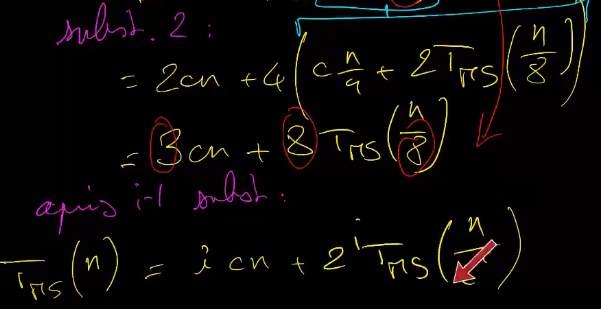 subst. 2 :
= 2cn + 4 ( c n/4 + 2 T_MS ( n/8 ) )
= 3cn + 8 T_MS ( n/8 )
après i-1 subst.
T_MS (n) = i cn + 2^i T_MS ( n/